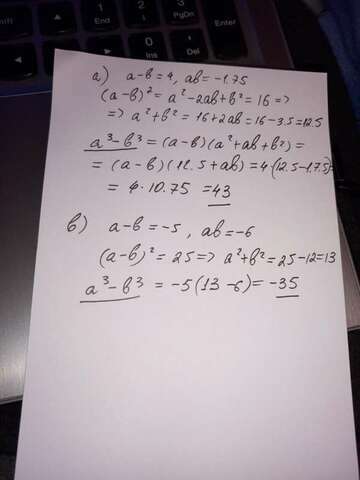 End
3
PgDn
Enter
0
Ins
Del
а) a-b=4, ab=-1.75
(a-b)²=a²-2ab+b²=16=>
=> a²+b²=16+2ab=16-3.5=12.5
a³-b³=(a-b)(a²+ab+b²)=
=(a-b)(12.5+ab)=4·(12.5-1.75)=
=4·10.75=43
в) a-b=-5, ab=-6
(a-b)²=25=>a²+b²=25-12=13
a³-b³=-5(13-6)=-35